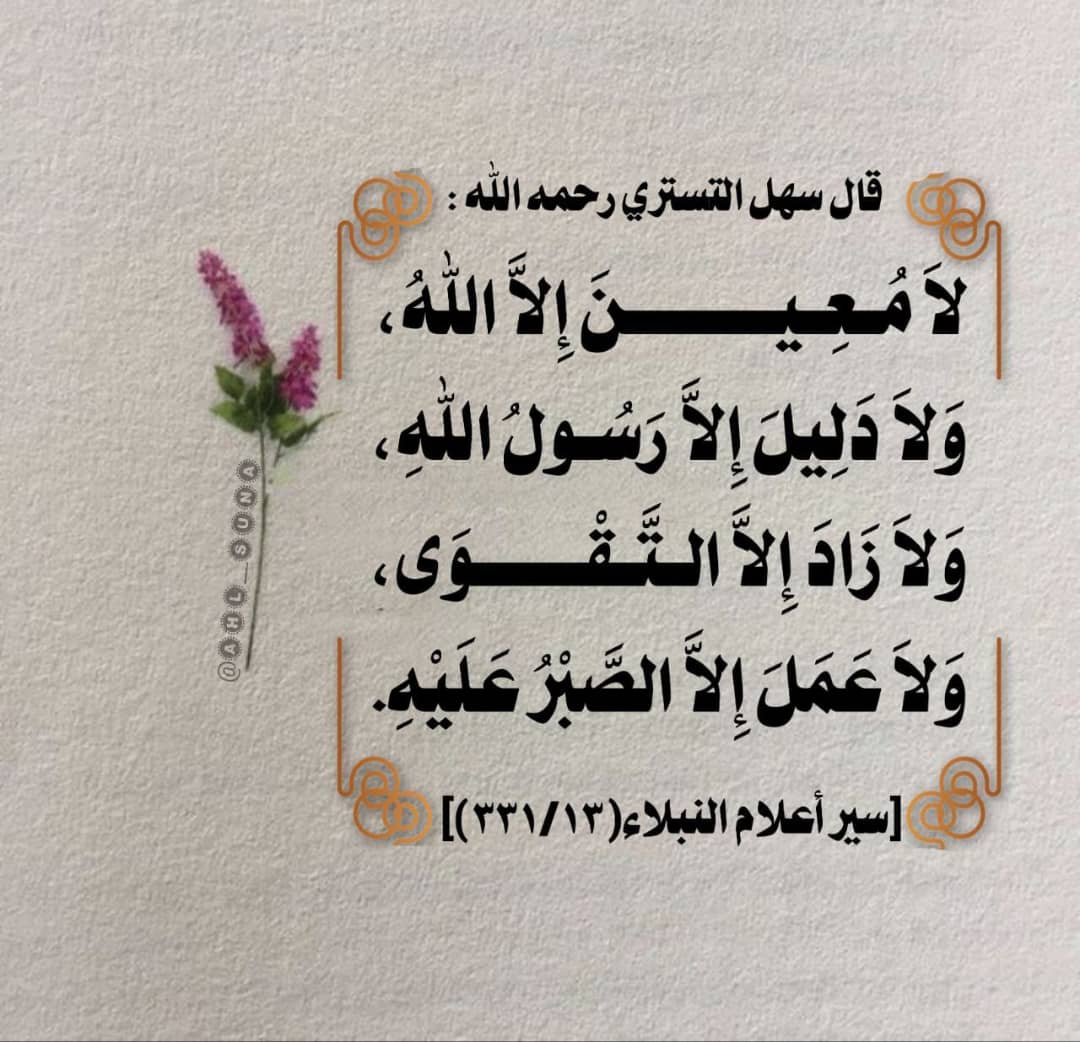 قال سهل التستري رحمه الله :
لاَ مُعِيـــــنَ إِلاَّ اللهُ،
وَلاَ دَلِيلَ إِلاَّ رَسُولُ اللهِ،
وَلاَ زَادَ إِلاَّ التَّقْـــــوَى،
وَلاَ عَمَلَ إِلاَّ الصَّبْرُ عَلَيْهِ.
[سير أعلام النبلاء(٣٣١/١٣)]
@AHL_SUNA